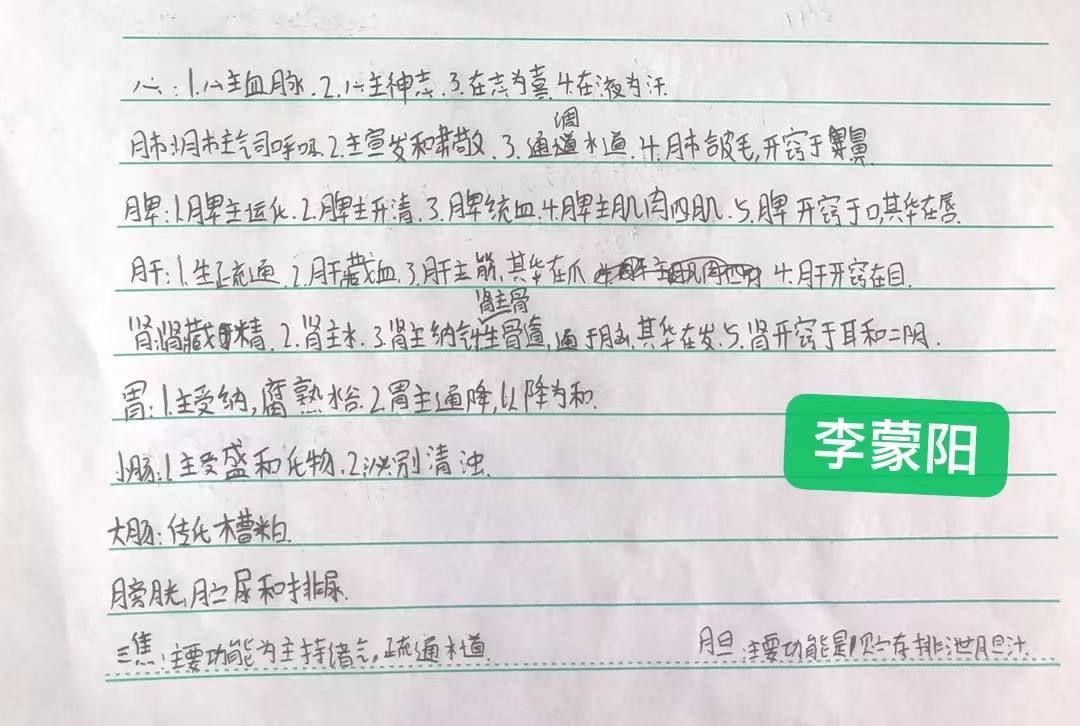 心:1.心主血脉.2.心主神志.3.在志为喜.4.在液为汗.
调
肺:1.肺主气司呼吸.2.主宣发和肃降.3.通道水道.4.肺合皮毛,开窍于鼻
脾:1.脾主运化.2.脾主升清.3.脾统血.4.脾主肌肉四肌.5.脾开窍于口,其华在唇.
肝:1.主疏通.2.肝藏血.3.肝主筋,其华在爪 4.肝开窍在目.
肾主骨
肾:肾藏精.2.肾主水.3.肾主纳气 生骨髓,通于脑,其华在发.5.肾开窍于耳和二阴.
胃:1.主受纳,腐熟水谷.2.胃主通降,以降为和.
李蒙阳
小肠:1.主受盛和化物.2.泌别清浊.
大肠:传化糟粕.
膀胱,贮尿和排尿.
三焦:主要功能为主持诸气,疏通水道.
胆:主要功能是贮存排泄胆汁.